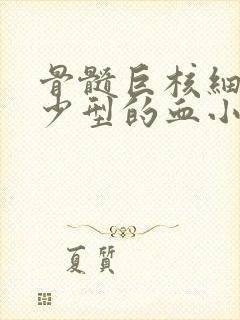 骨髓巨核细
少型的血小
夏質